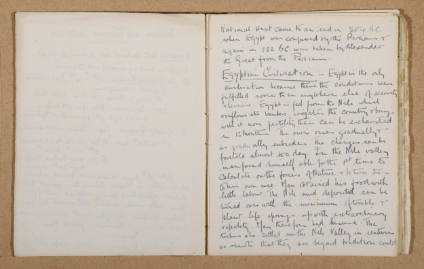 National Hist came to an end in 504 B.C.
when Egypt was conquered by the Persians &
again in 332 B.C. was taken by Alexander
the Great from the Persians.
Egyptian Civilisation – Egypt is the only
civilisation because there the conditions were
fulfilled sooner than anywhere else of security
Egypt is fed from the Nile which
overflows its banks the country &
will it more fertility than can be exhausted
in 12 months. The river rises gradually &
as gradually subsides. The changes can be
foretold almost to a day. In the Nile valley
man found himself able for the 1st time to
calculate on the forces of Nature & to turn them
to his own use. Man obtained his food with
little labour. The Nile mud deposited can be
tilled over with the minimum of trouble &
plant life springs up with extraordinary
rapidity. Men therefore had leisure. The
are settled on the Nile Valley in centuries
so remote that they are beyond tradition could